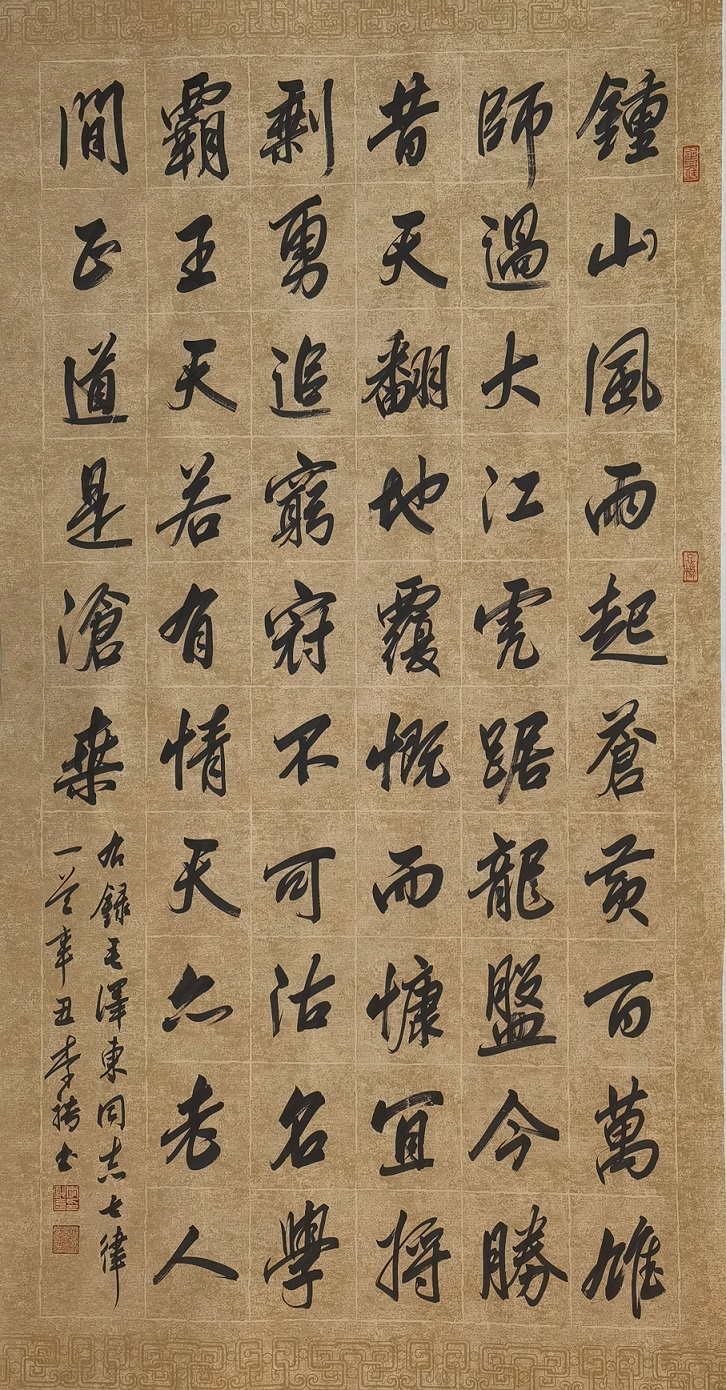 鍾山風雨起蒼黃百萬雄
師過大江虎踞龍盤今勝
昔天翻地覆慨而慷宜將
剩勇追窮寇不可沽名學
霸王天若有情天亦老人
間正道是滄桑
右錄毛澤東同志七律
一首辛丑李書